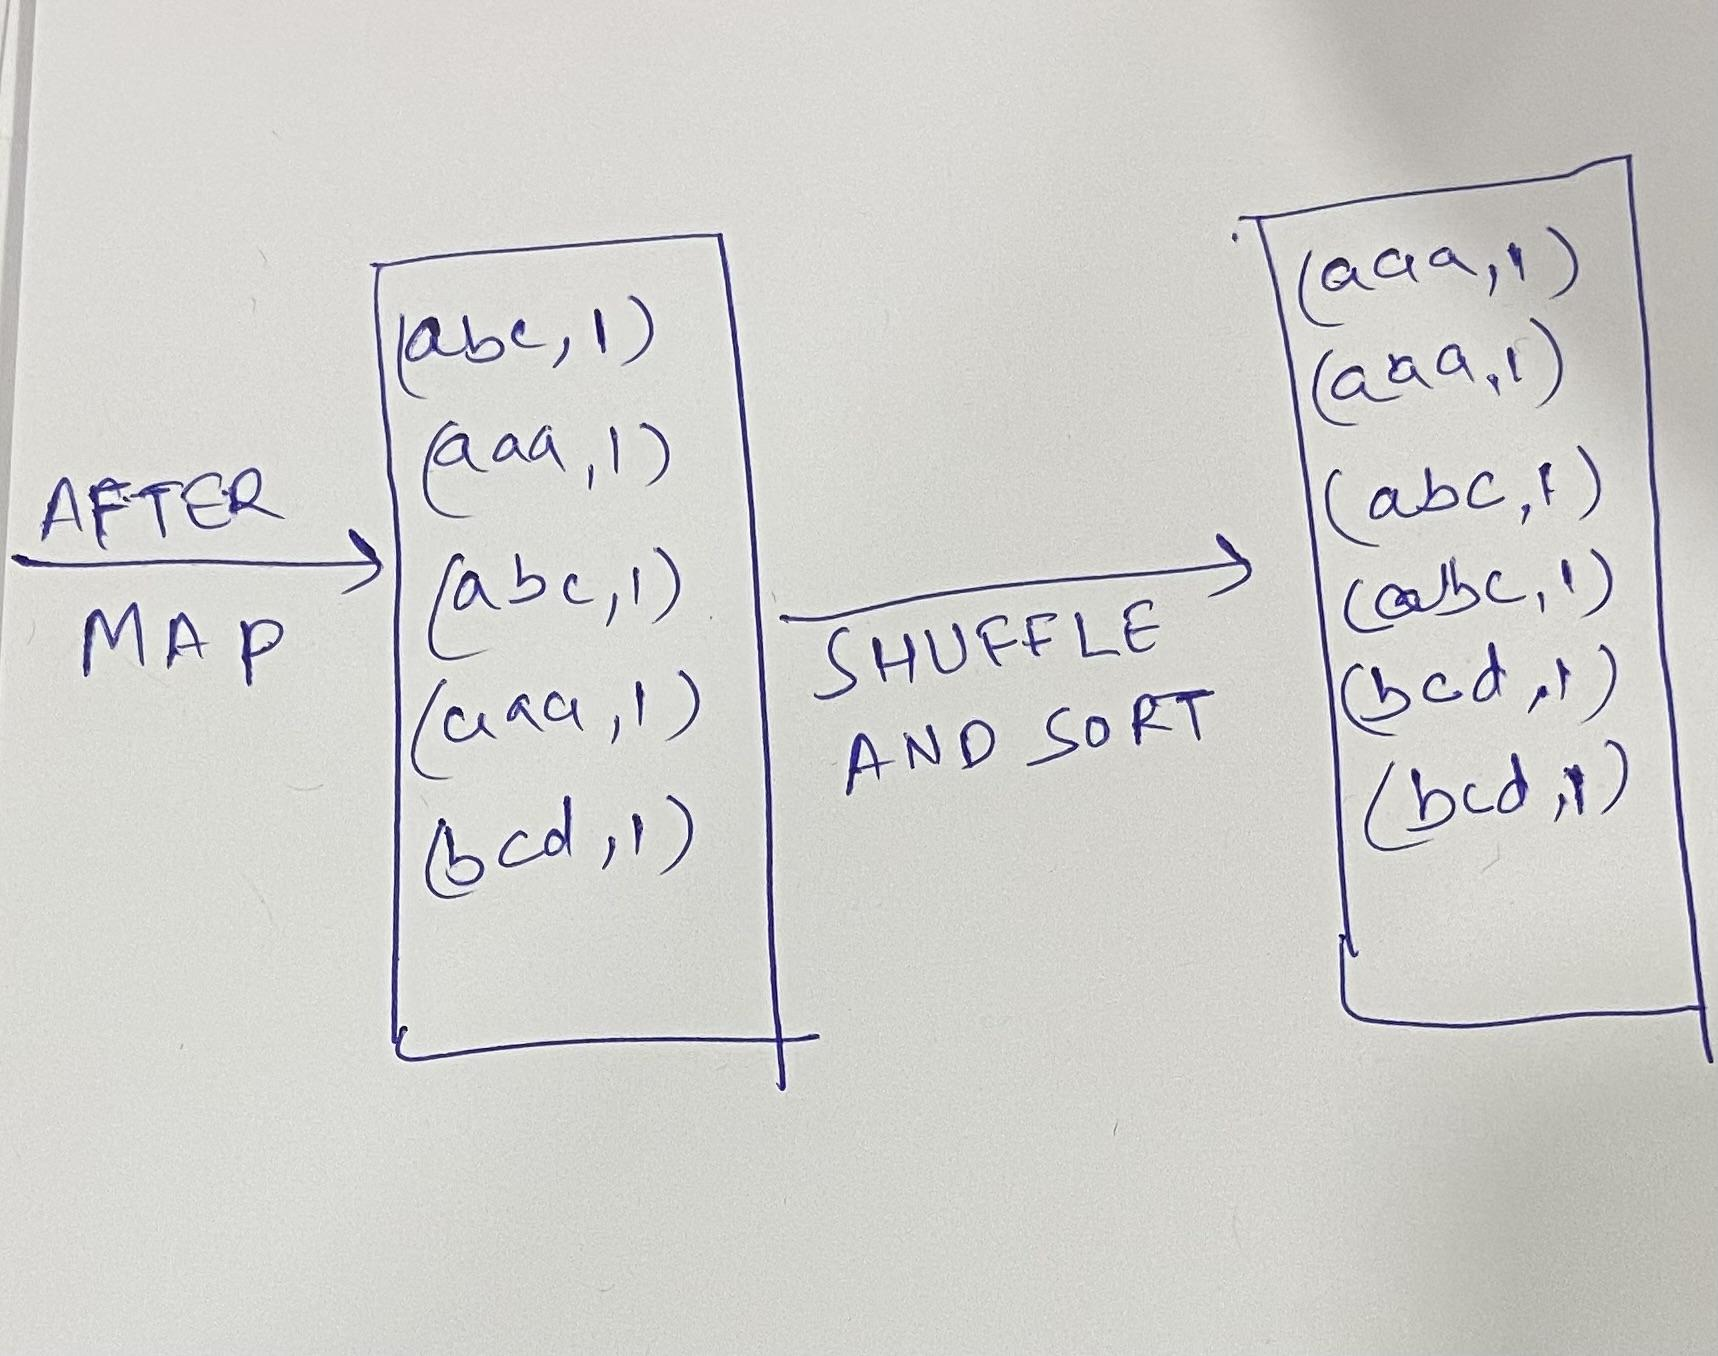 AFTER
MAP
(abc, 1)
(aaa, 1)
(abc, 1)
(aaa, 1)
(bcd, 1)
SHUFFLE
AND SORT
(aaa, 1)
(aaa, 1)
(abc, 1)
(abc, 1)
(bcd, 1)
(bcd, 1)